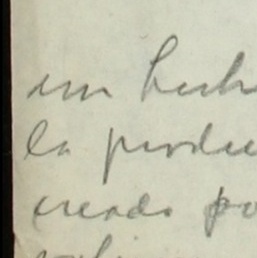 un hech
la produc
creado po